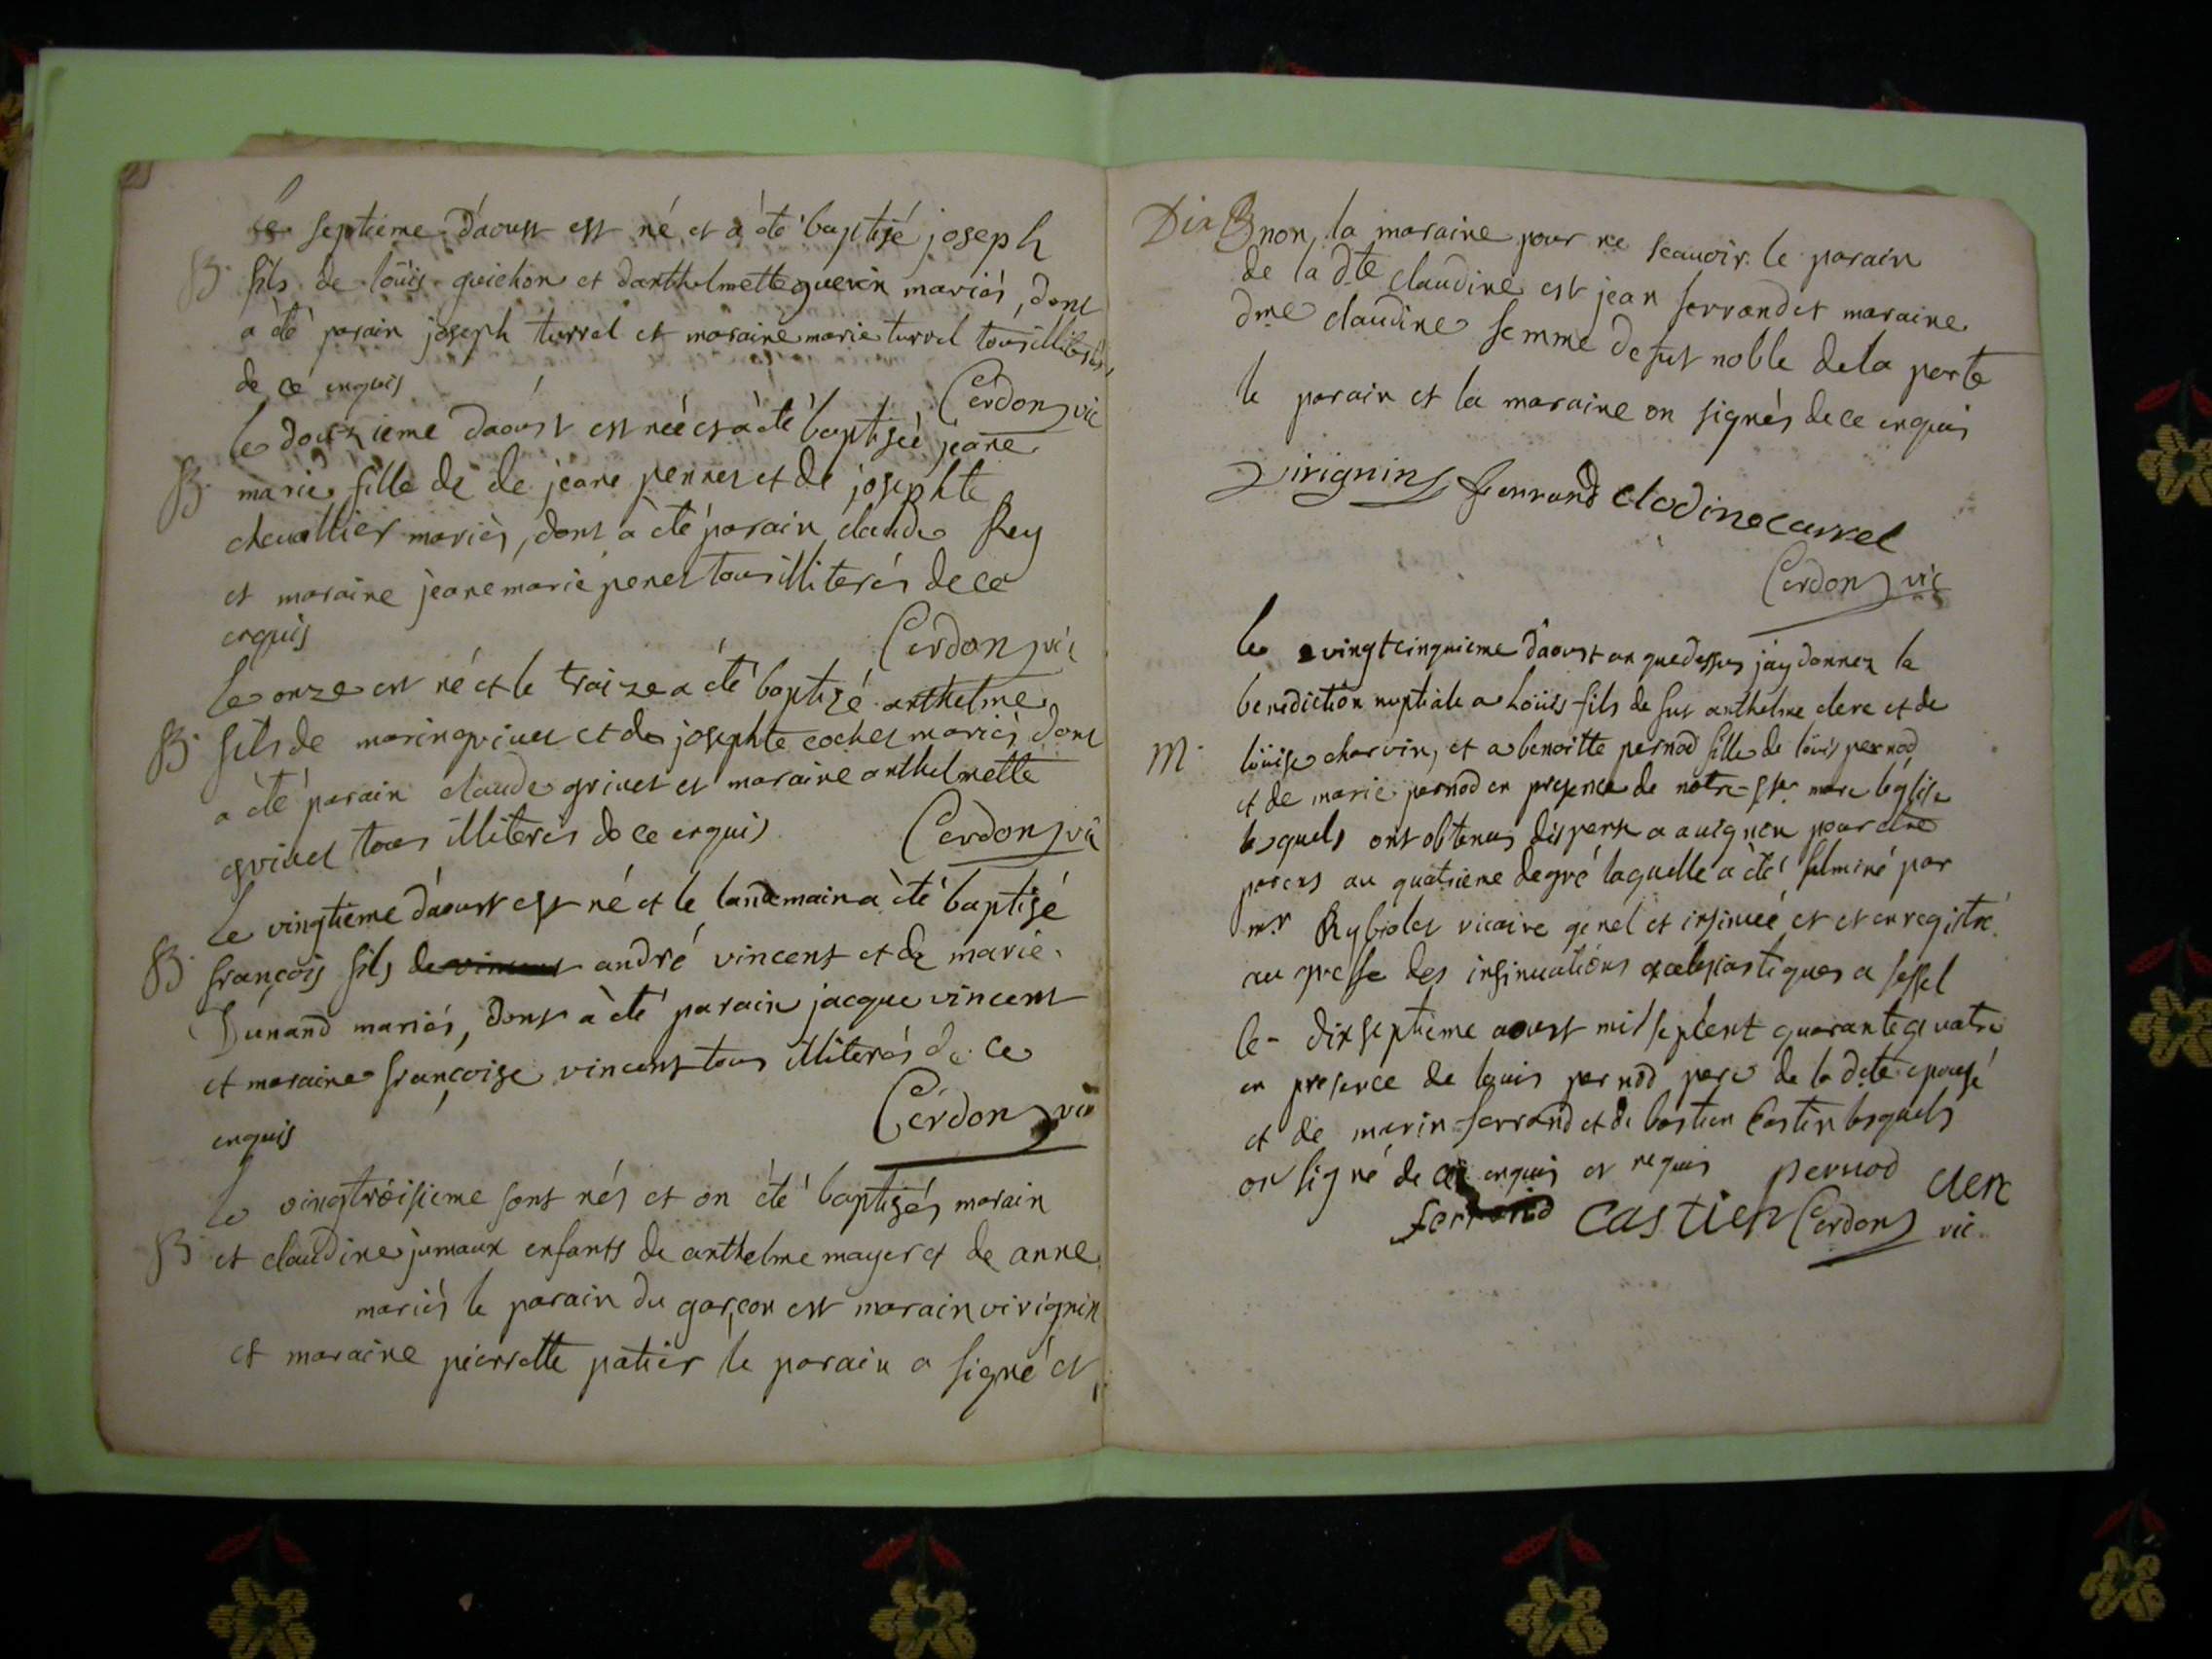 le septieme d'aoust est né et a èté baptisé joseph
B. fils de loüis guichon et danthelmette guerin mariés, dont
a èté parain joseph turrel et maraine marie turrel tous illiterés
de ce enquis Cerdon vic
le douzieme d'aoust est neé et a èté baptiseé jeane
B. marie fille de de jeane pernet et de josephte
chevallier mariès, dont à èté parain claude Rey
et maraine jeane marie penet tous illiterés de ce
enquis Cerdon vic
le onze est né et le traize a èté baptizé anthelme
B. fils de marin grivet et de josephte cochet mariés dont
a èté parain claude grivet et maraine anthelmette
grivet tous illiterés de ce enquis Cerdon vic
le vingtieme d'aoust est né et le landemain a èté baptisé
B. françois fils de vincent andré vincent et de marie
Dunand mariés, dont à èté parain jacque vincent
et maraine françoise vincent tous illiterés de ce
enquis Cerdon vic
le vingtroisieme sont nés et on èté baptisés marain
B. et claudine jumaux enfants de anthelme mayer et de anne
mariés le parain du garçon est marain virignin
et maraine pierrette patier le parain a signé et
Dix B non la maraine pour ne scauoir. le parain
de la dte claudine est jean ferrand et maraine
dme claudine femme de fut noble de la porte
le parain et la maraine on signés de ce enquis
Virignin ferrand clodine carrel
Cerdon vic
le vingtcinquieme d'aoust an que dessus j'ay donnez la
benediction nuptiale a Loüis fils de fut anthelme clerc et de
M. loüise charvin, et a benoitte pernod fille de loüis pernod
et de marie pernod en presence de notre ste mere l'église
lesquels ont obtenus dispense a auignon pour etre
parens au quatrieme degré laquelle a èté fulminé par
mr vicaire genel et insinueé et et enregistré
au greffe des insinuations ecclesiastiques a
le - dixseptieme aoust mil sept cent quarante quatre
en presence de louis pernod pere de la dte epouse
et de marin ferrand et de bastien Castin lesquels
on signé de ce enquis et requis pernod clerc
ferrand Castien Cerdon vic.